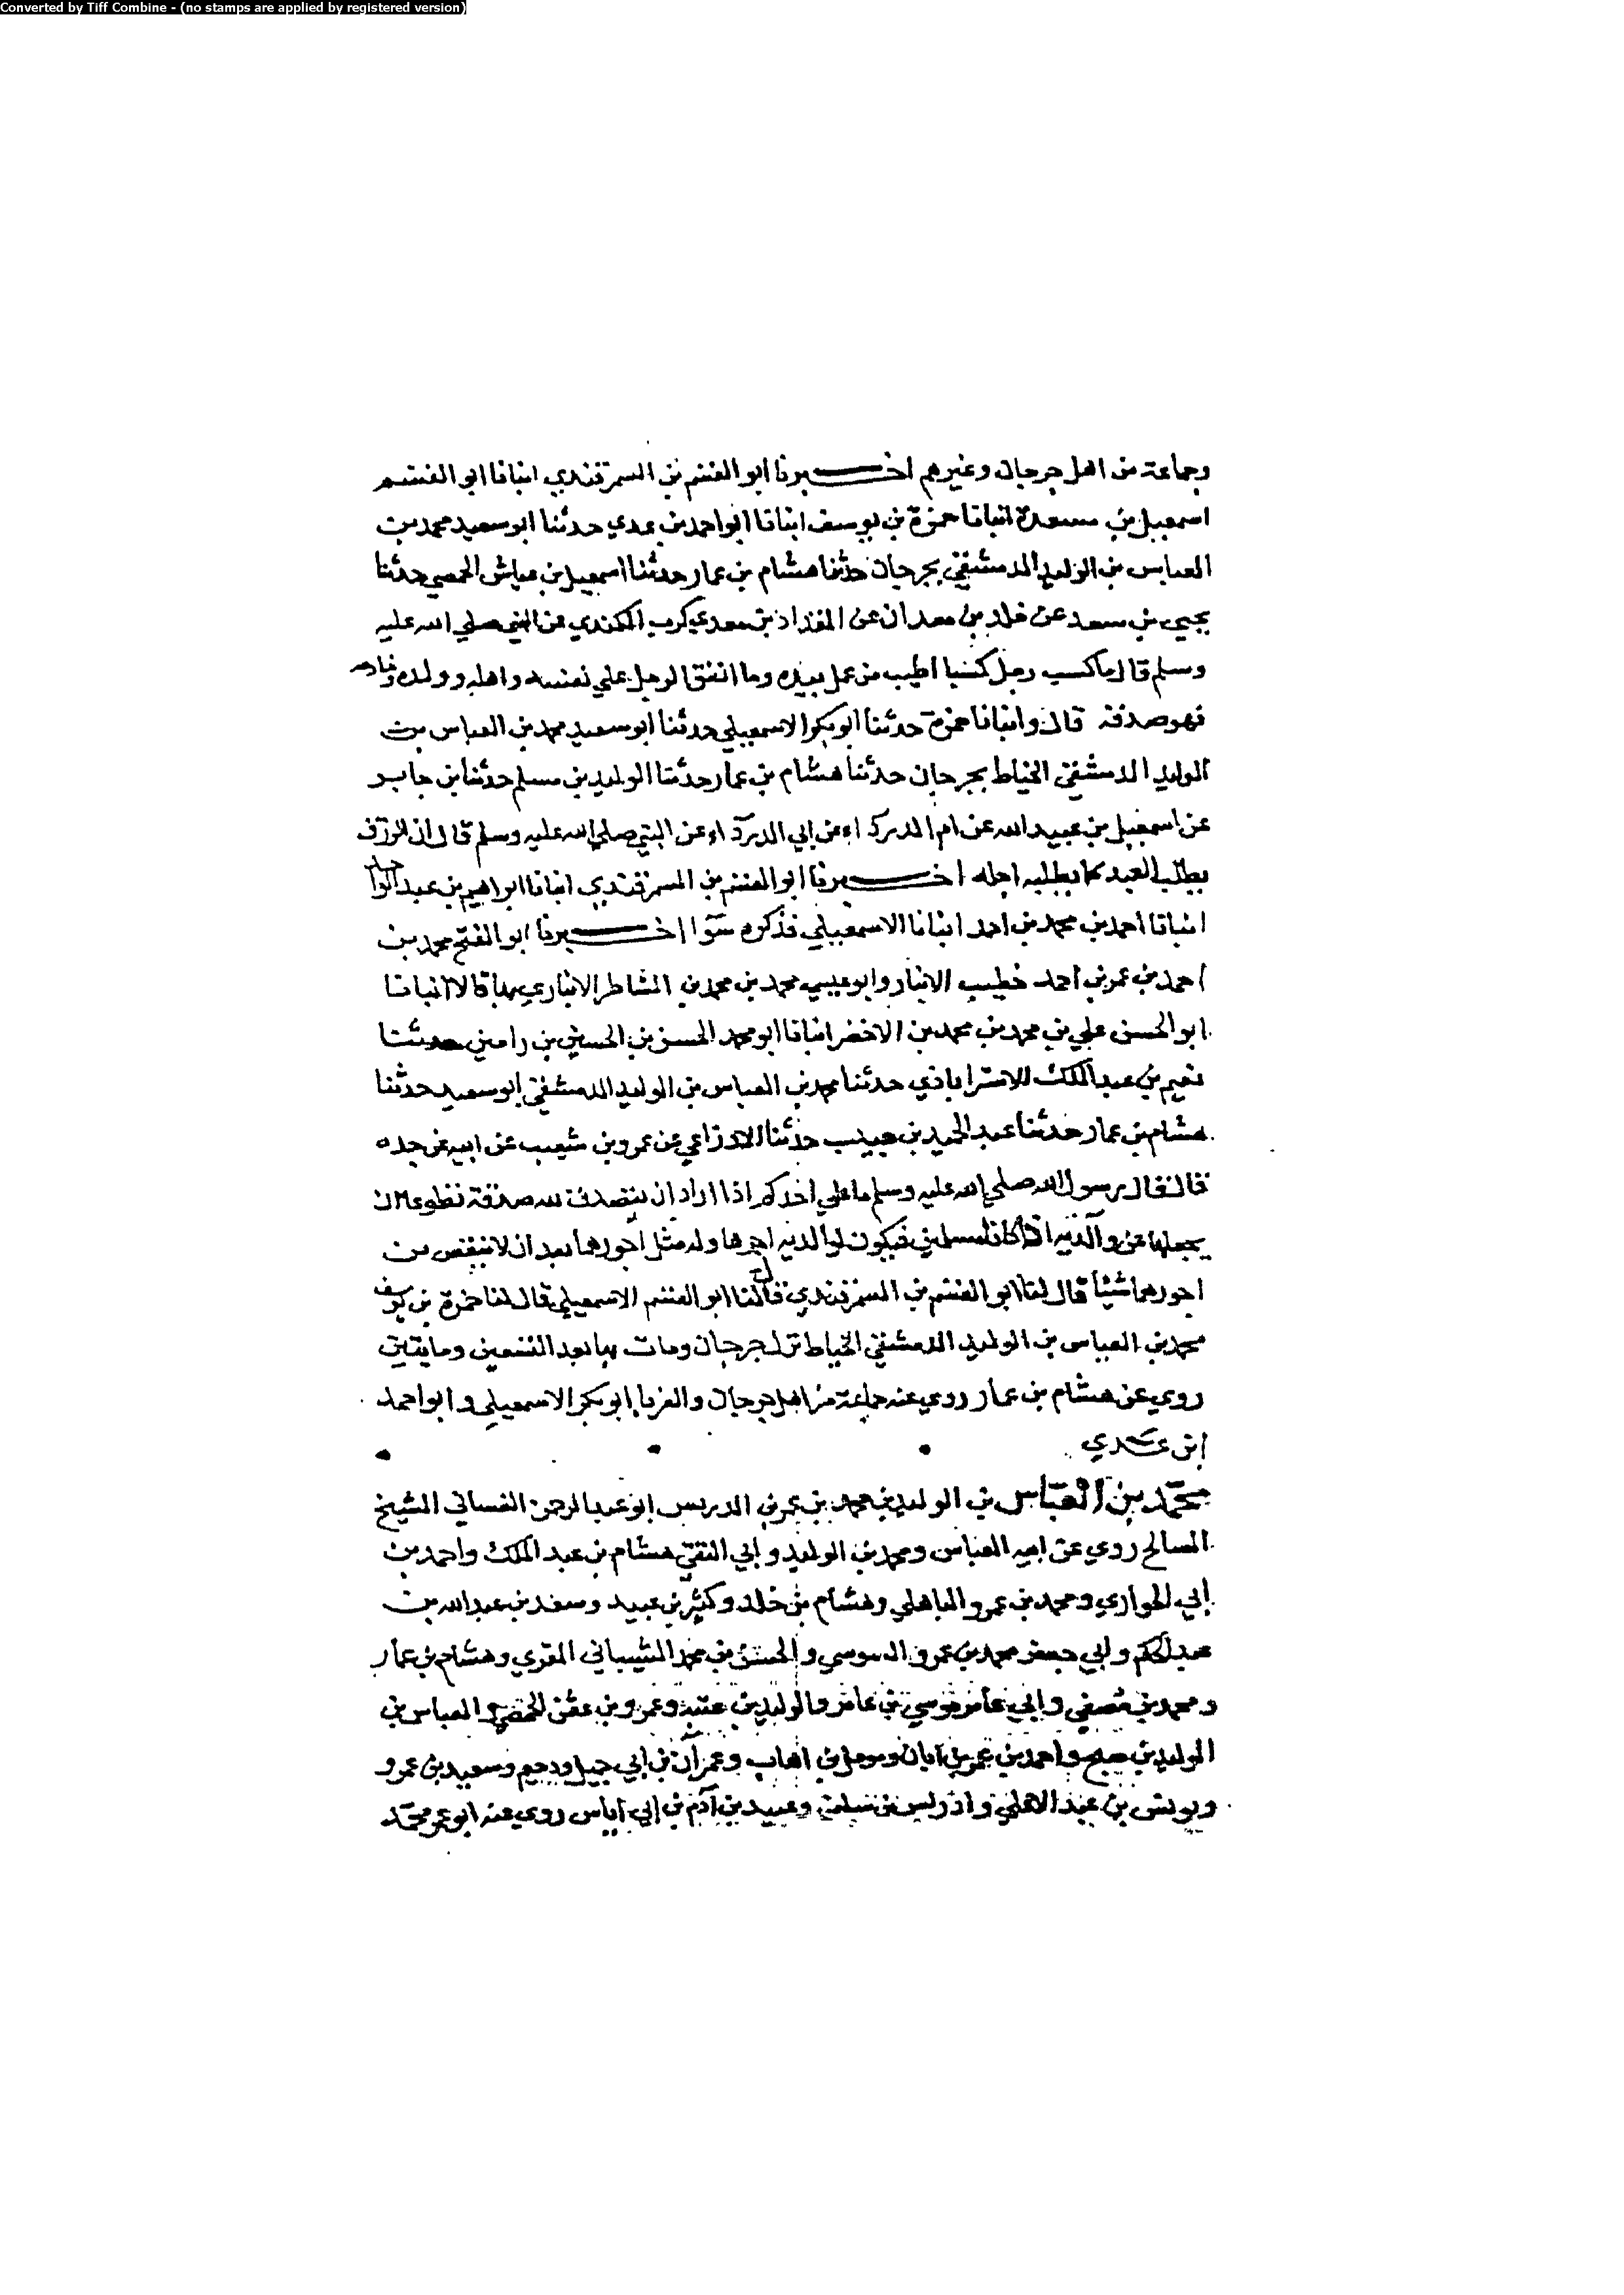 Converted by Tiff Combine - (no stamps are applied by registered version)
وجماعة من اهل جرجان وغيرهم اخـــبرنا ابو القسم بن السمرقندي انبانا ابو القسم
اسمعيل بن مسعدة انبانا حمزة بن يوسف انبانا ابو احمد بن عدي حدثنا ابو سعيد محمد بن
العباس بن الوليد الدمشقي بجرجان حدثنا هشام بن عمار حدثنا اسمعيل بن عياش الحمصي حدثنا
بحيى بن سعد عن خلد بن معدان عن المقداد بن معدي كرب الكندي عن النبي صلي الله عليه
وسلم قال ما كسب رجل كسبا اطيب من عمل بيده وما انفق الرجل علي نفسه واهله وولده وخادمه
فهو صدقة قال وانبانا حمزة حدثنا ابو بكر الاسمعيلي حدثنا ابو سعيد محمد بن العباس بن
الوليد الدمشقي الخياط بجرجان حدثنا هشام بن عمار حدثنا الوليد بن مسلم حدثنا بن جابر
عن اسمعيل بن عبيد الله عن ام الدرداء عن ابي الدرداء عن النبي صلي الله عليه وسلم قال ان الرزق
يطلب العبد كما يطلبه اجله اخـــبرنا ابو القسم بن السمرقندي انبانا ابراهيم بن عبد الواحد
انبانا احمد بن محمد بن احمد انبانا الاسمعيلي فذكره سوا اخـــبرنا ابو الفتح محمد بن
احمد بن عمر بن احمد خطيب الانبار وابو عيسي محمد بن محمد بن الشاطر الانباري بها قالا انبانا
ابو الحسن علي بن محمد بن محمد بن الاخضر انبانا ابو محمد الحسن بن الحسين بن رامين حدثنا
نعيم بن عبد الملك الاسترابادي حدثنا محمد بن العباس بن الوليد الدمشقي ابو سعيد حدثنا
هشام بن عمار حدثنا عبد الحميد بن حبيب حدثنا الاوزاعي عن عمرو بن شعيب عن ابيه عن جده
قال قال رسول الله صلي الله عليه وسلم ما علي احدكم اذا اراد ان يتصدق لله صدقة تطوعا ان
يجعلها عن والديه اذا كانا مسلمين فيكون لوالديه اجرها وله مثل اجورهما بعد ان لا ينقص من
اجورهما شيئا قال لنا ابو القسم بن السمرقندي قال لنا ابو القسم الاسمعيلي قال لنا حمزة بن يوسف
محمد بن العباس بن الوليد الدمشقي الخياط نزل جرجان ومات بها بعد التسعين ومايتين
روي عن هشام بن عمار روي عنه جماعة من اهل جرجان والغربا ابو بكر الاسمعيلي وابو احمد
ابن عدي
محمد بن العباس بن الوليد بن محمد بن عمر بن الدرفس ابو عبد الرحمن الغساني الشيخ
الصالح روي عن ابيه العباس ومحمد بن الوليد وابي التقي هشام بن عبد الملك واحمد بن
ابي الحواري ومحمد بن عمرو الباهلي وهشام بن خلد وكثير بن عبيد وسعد بن عبد الله بن
عبد الحكم وابي جعفر محمد بن عمرو السوسي والحسن بن محمد الشيباني المقري وهشام بن عمار
ومحمد بن مصفي وابي عامر موسي بن عامر والوليد بن عتبة وعمرو بن عثمن الحمصي والعباس بن
الوليد بن صبح واحمد بن عمر بن ابان ومومل بن اهاب وعمران بن ابي جميل ودحيم وسعيد بن عمرو
ويونس بن عبد الاعلي وادريس بن سلمة وعبيد بن آدم بن ابي اياس روي عنه ابو عمر محمد